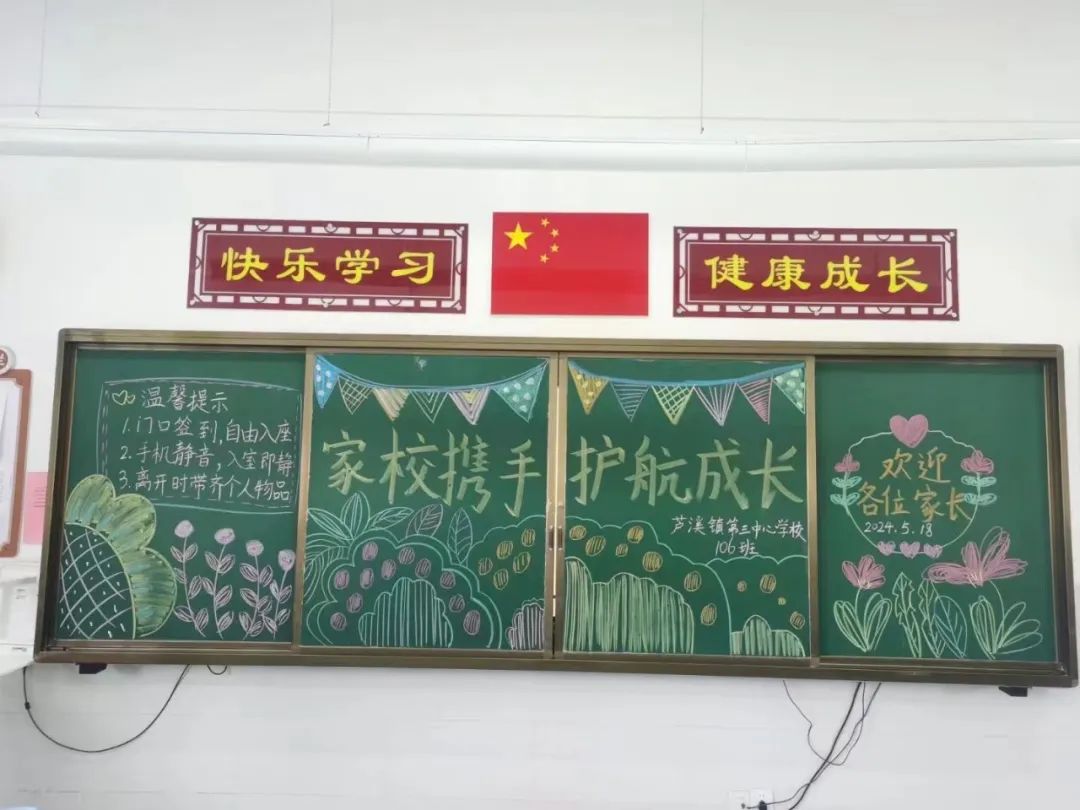 快乐学习
健康成长
温馨提示
1.门口签到,自由入座
2.手机静音,入室即静
3.离开时带齐个人物品
家校携手 护航成长
芦溪镇第三中心学校
106班
欢迎
各位家长
2024.5.18